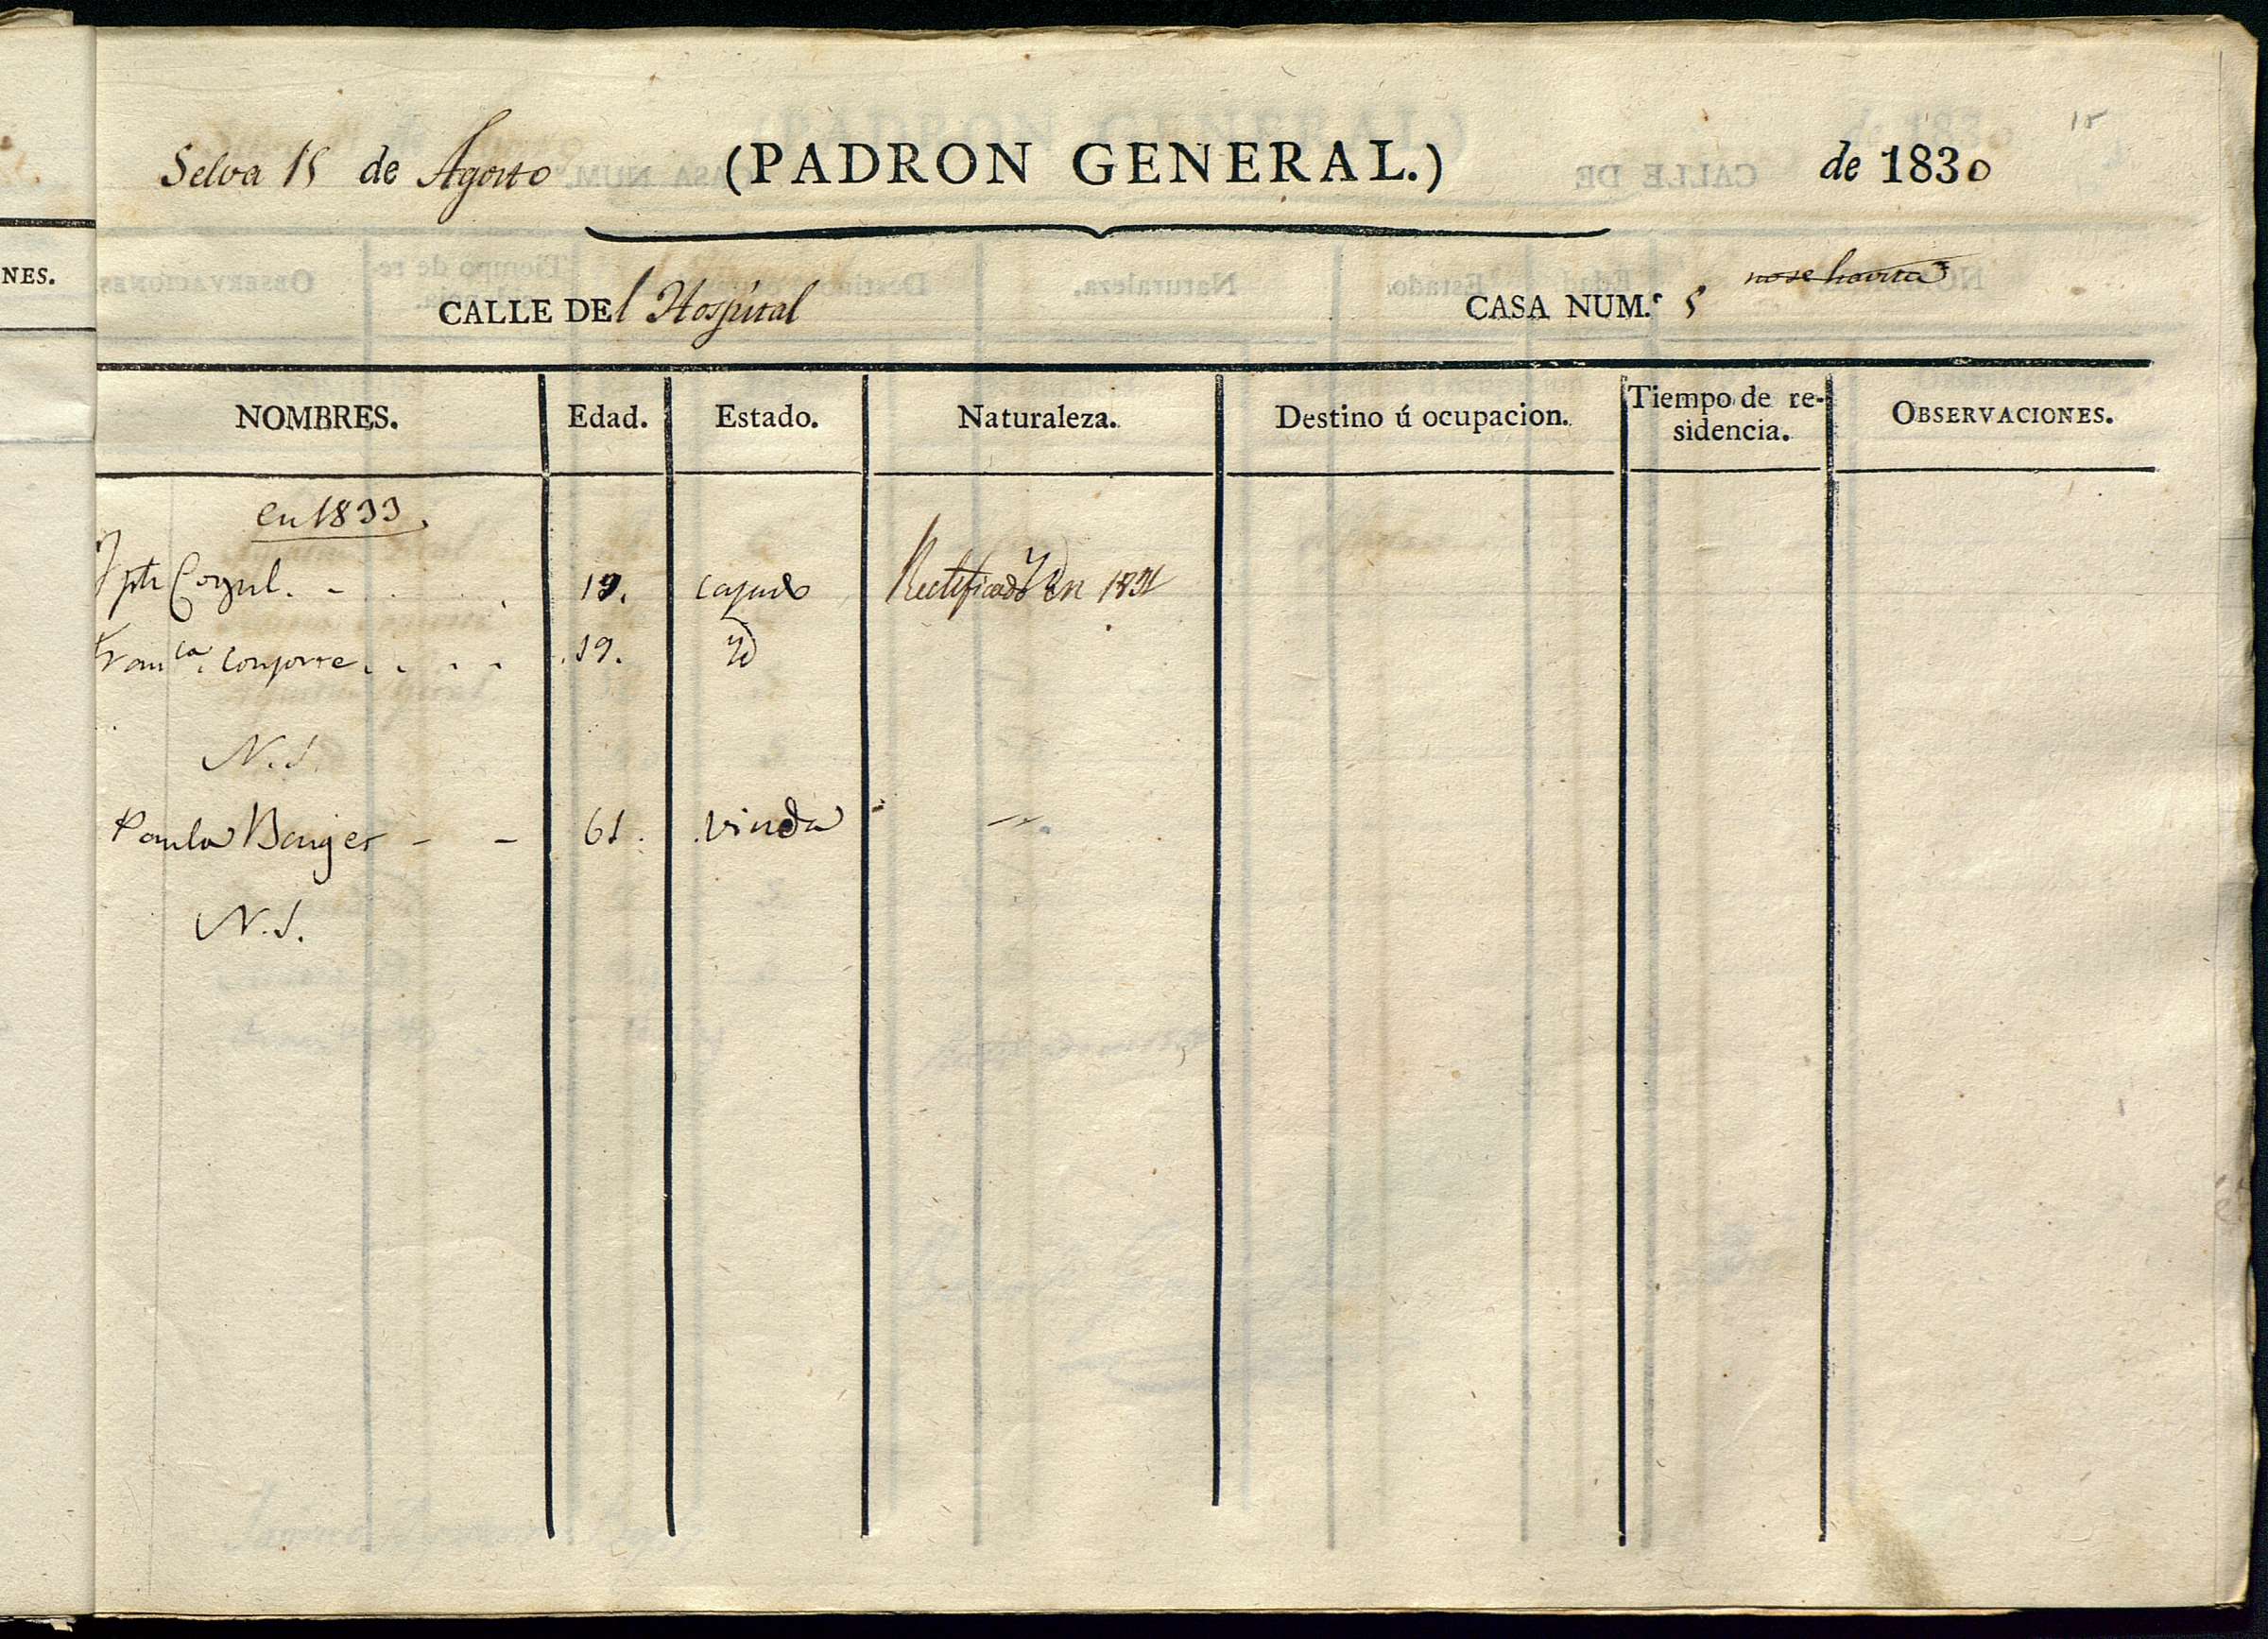 NES.
15
Selva 15 de Agosto (PADRON GENERAL.) de 1830
CALLE DEl Hospital CASA NUM.º 5 no se havita
NOMBRES. Edad. Estado. Naturaleza. Destino ú ocupacion. Tiempo de re-sidencia. OBSERVACIONES.
en 1833.
Jph Cogul. - 19. casado Rectificado en 1831
Franca. 19. Yd
N. S.
Paula - - 61. viuda
N. S.